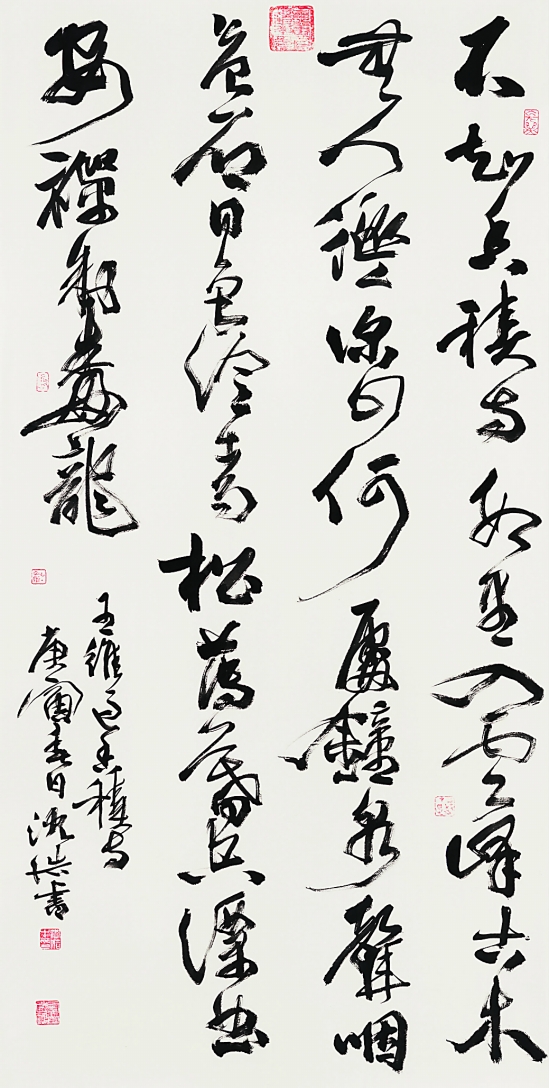 不知香積寺數里入雲峰古木
無人徑深山何處鐘泉聲咽
危石日色冷青松薄暮空潭曲
安禪制毒龍
王維過香積寺
庚寅春日沈書